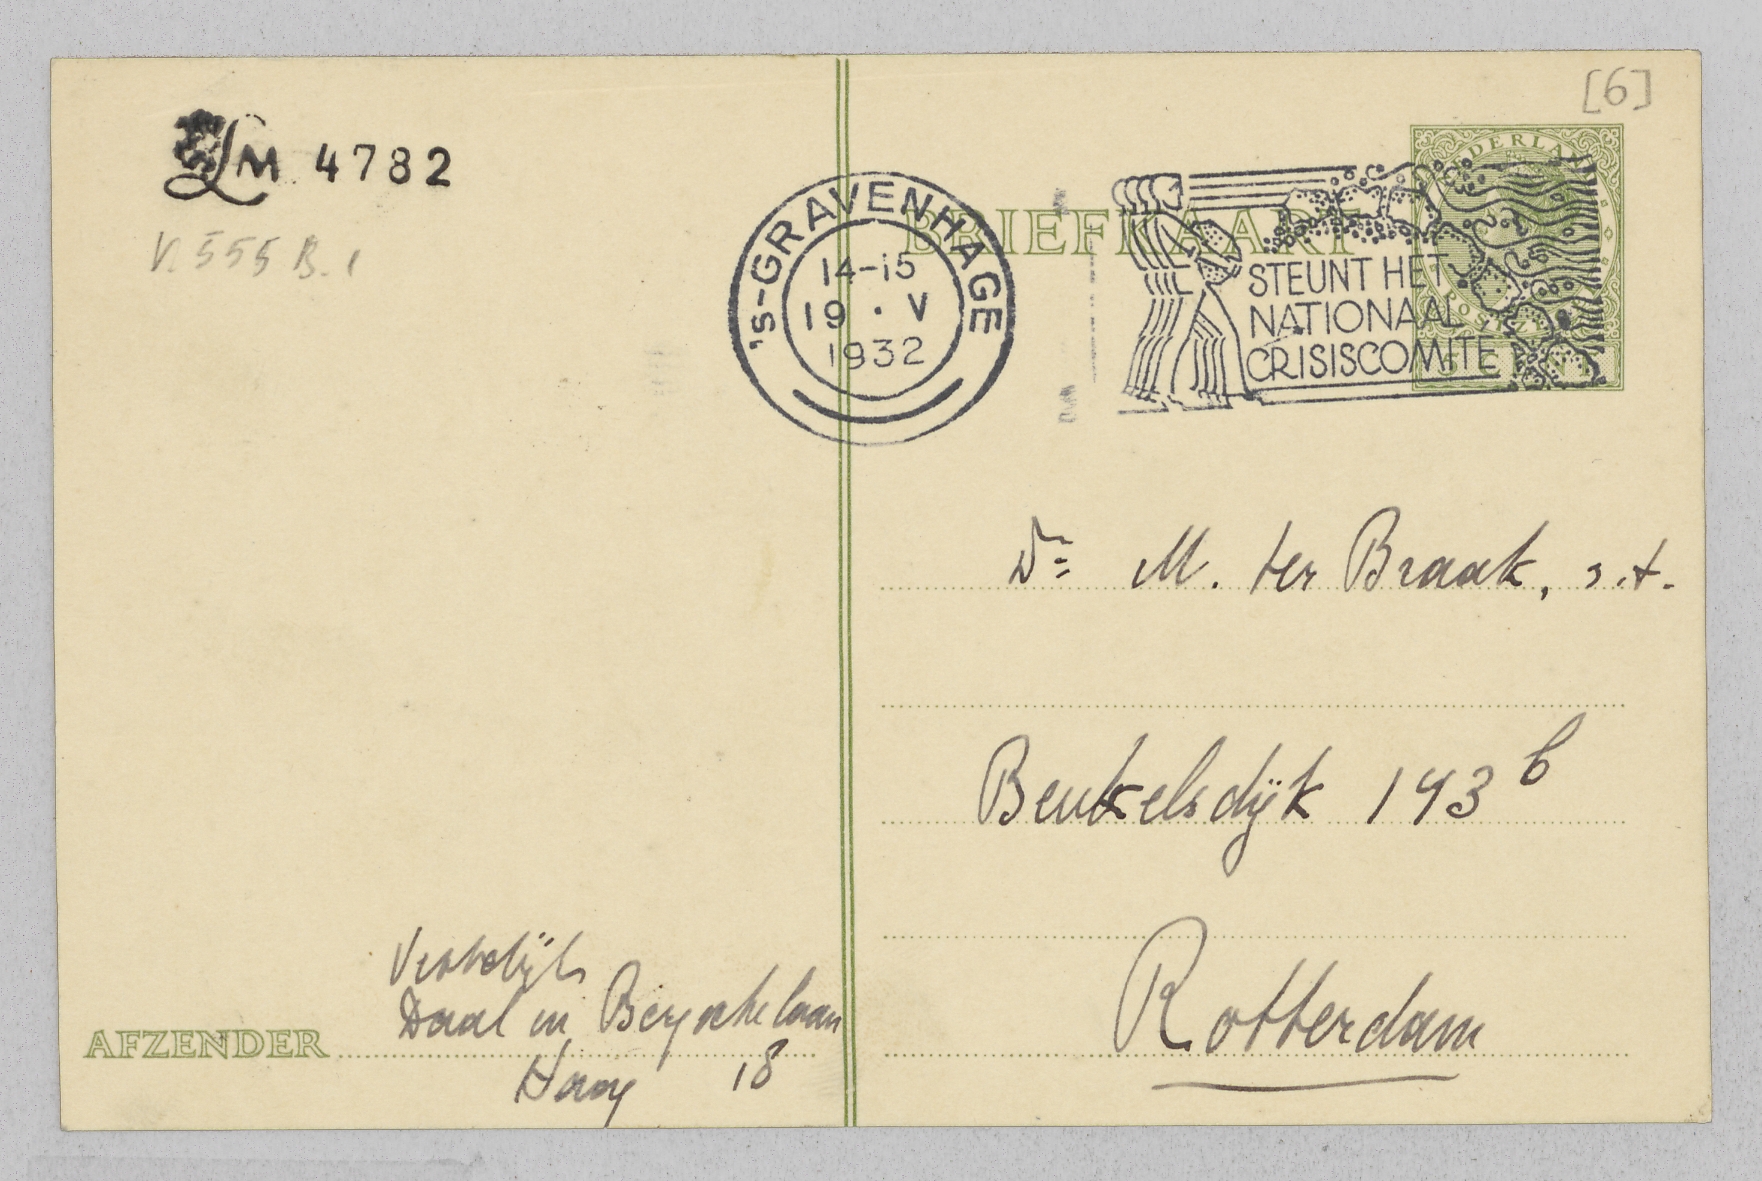 [6]
LM 4782
V. 555 B. 1
's-GRAVENHAGE
14-15
19 · V
1932
BRIEFKAART
NEDERLAND
STEUNT HET
NATIONAAL
CRISISCOMITE
Dr M. ter Braak, s.t.
Beukelsdijk 143 b
Rotterdam
Vestdijk
Daal en Bergschelaan
AFZENDER
Haag 18